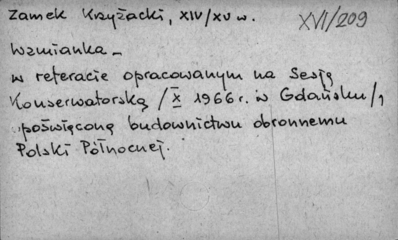 Zamek Krzyżacki, XIV/XV w.
XVI/209
Wzmianka –
w referacie opracowanym na Sesję
Konserwatorską /X 1966 r. w Gdańsku/,
poświęconą budownictwu obronnemu
Polski Północnej.